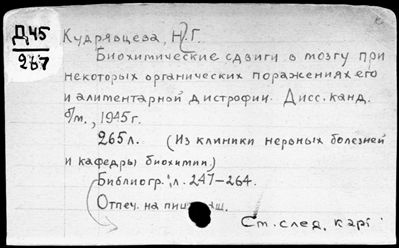 Д45
267
Кудрявцева, Н.Г.
Биохимические сдвиги в мозгу при
некоторых органических поражениях его
и алиментарной дистрофии. Дисс. канд.
б/м., 1945г.
265л. (Из клиники нервных болезней
и кафедры биохимии.)
Библиогр.: л. 247-264.
Отпеч. на
См. след. карт.